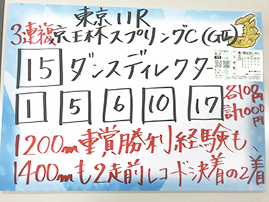 東京11R
3連複 京王杯スプリングC(GⅡ)
15 ダンスディレクター
1 5 6 10 17 各100円
計1000円
1200m重賞勝利経験も、
1400mも2走前レコード決着の2着